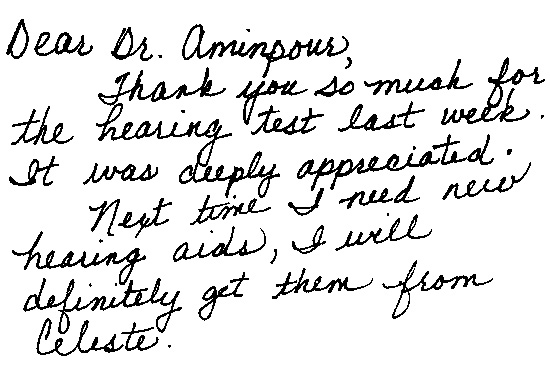 Dear Dr. Aminpour,
Thank you so much for
the hearing test last week.
It was deeply appreciated.
Next time I need new
hearing aids, I will
definitely get them from
Celeste.